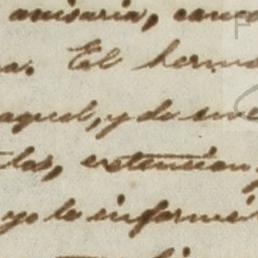 avisaria, cuan
a. El herm
aquel, y de sue
las, extencion,
yo le informé